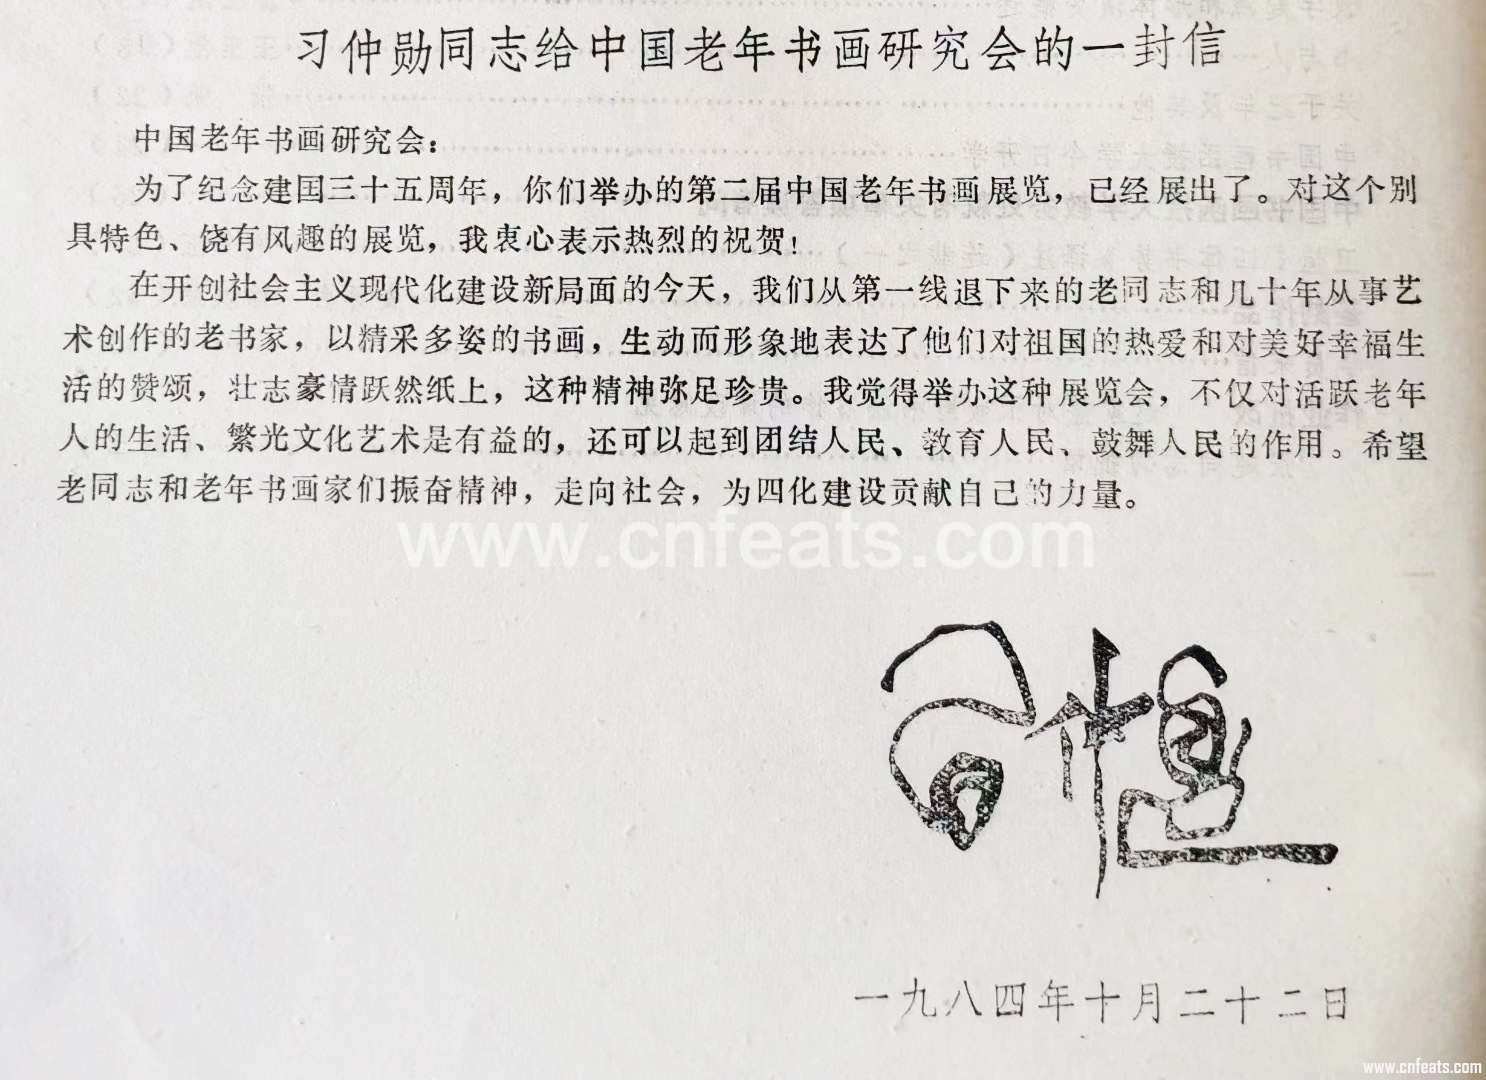 习仲勋同志给中国老年书画研究会的一封信
中国老年书画研究会：
为了纪念建国三十五周年，你们举办的第二届中国老年书画展览，已经展出了。对这个别
具特色、饶有风趣的展览，我衷心表示热烈的祝贺！
在开创社会主义现代化建设新局面的今天，我们从第一线退下来的老同志和几十年从事艺
术创作的老书家，以精采多姿的书画，生动而形象地表达了他们对祖国的热爱和对美好幸福生
活的赞颂，壮志豪情跃然纸上，这种精神弥足珍贵。我觉得举办这种展览会，不仅对活跃老年
人的生活、繁光文化艺术是有益的，还可以起到团结人民、教育人民、鼓舞人民的作用。希望
老同志和老年书画家们振奋精神，走向社会，为四化建设贡献自己的力量。
www.cnfeats.com
习仲勋
一九八四年十月二十二日
www.cnfeats.com